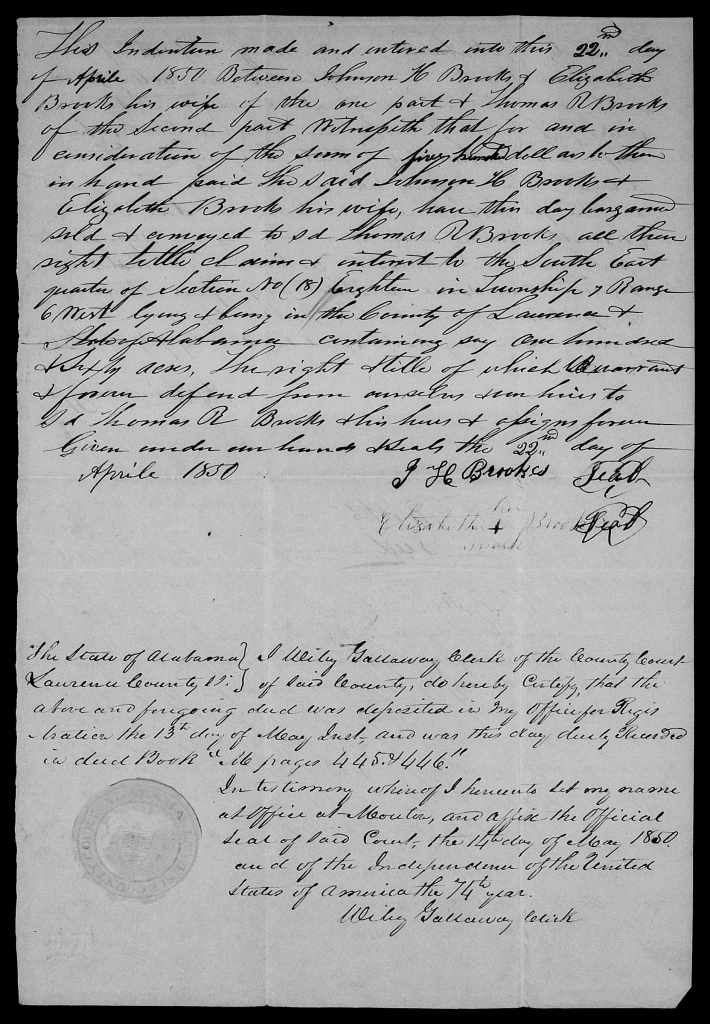 This Indenture made and entered into this 22nd day
of Aprile 1850 Between Johnson H Brooks & Elizabeth
Brooks his wife of the one part & Thomas R Brooks
of the second part Witnesseth that for and in
consideration of the sum of five hundred dollars to them
in hand paid the said Johnson H Brooks &
Elizabeth Brooks his wife, have this day bargained
sold & conveyed to sd Thomas R Brooks all their
right tittle claim & interest to the South East
quarter of Section No (18) Eighteen in Township 7 Range
6 West lying & being in the County of Lawrence &
State of Alabama containing say one hundred
& sixty acres, The right & title of which warrant
& forever defend from ourselves & our heirs to
sd Thomas R Brooks & his heirs & assigns forever
Given under our hands & seals the 22nd day of
Aprile 1850 J H Brookes Seal
her
Elizabeth + Brooks Seal
mark
The State of Alabama } I Wiley Gallaway Clerk of the County Court
Lawrence County } of said County, do hereby Certify, that the
above and foregoing deed was deposited in my Office for Regis
tration the 13th day of May Inst, and was this day duly Recorded
in deed Book "M pages 445 & 446."
In testimony whereof I hereunto set my name
at Office at Moulton, and affix the Official
Seal of said Court, the 14th day of May 1850
and of the Independence of the United
States of America the 74th year.
Wiley Gallaway Clerk